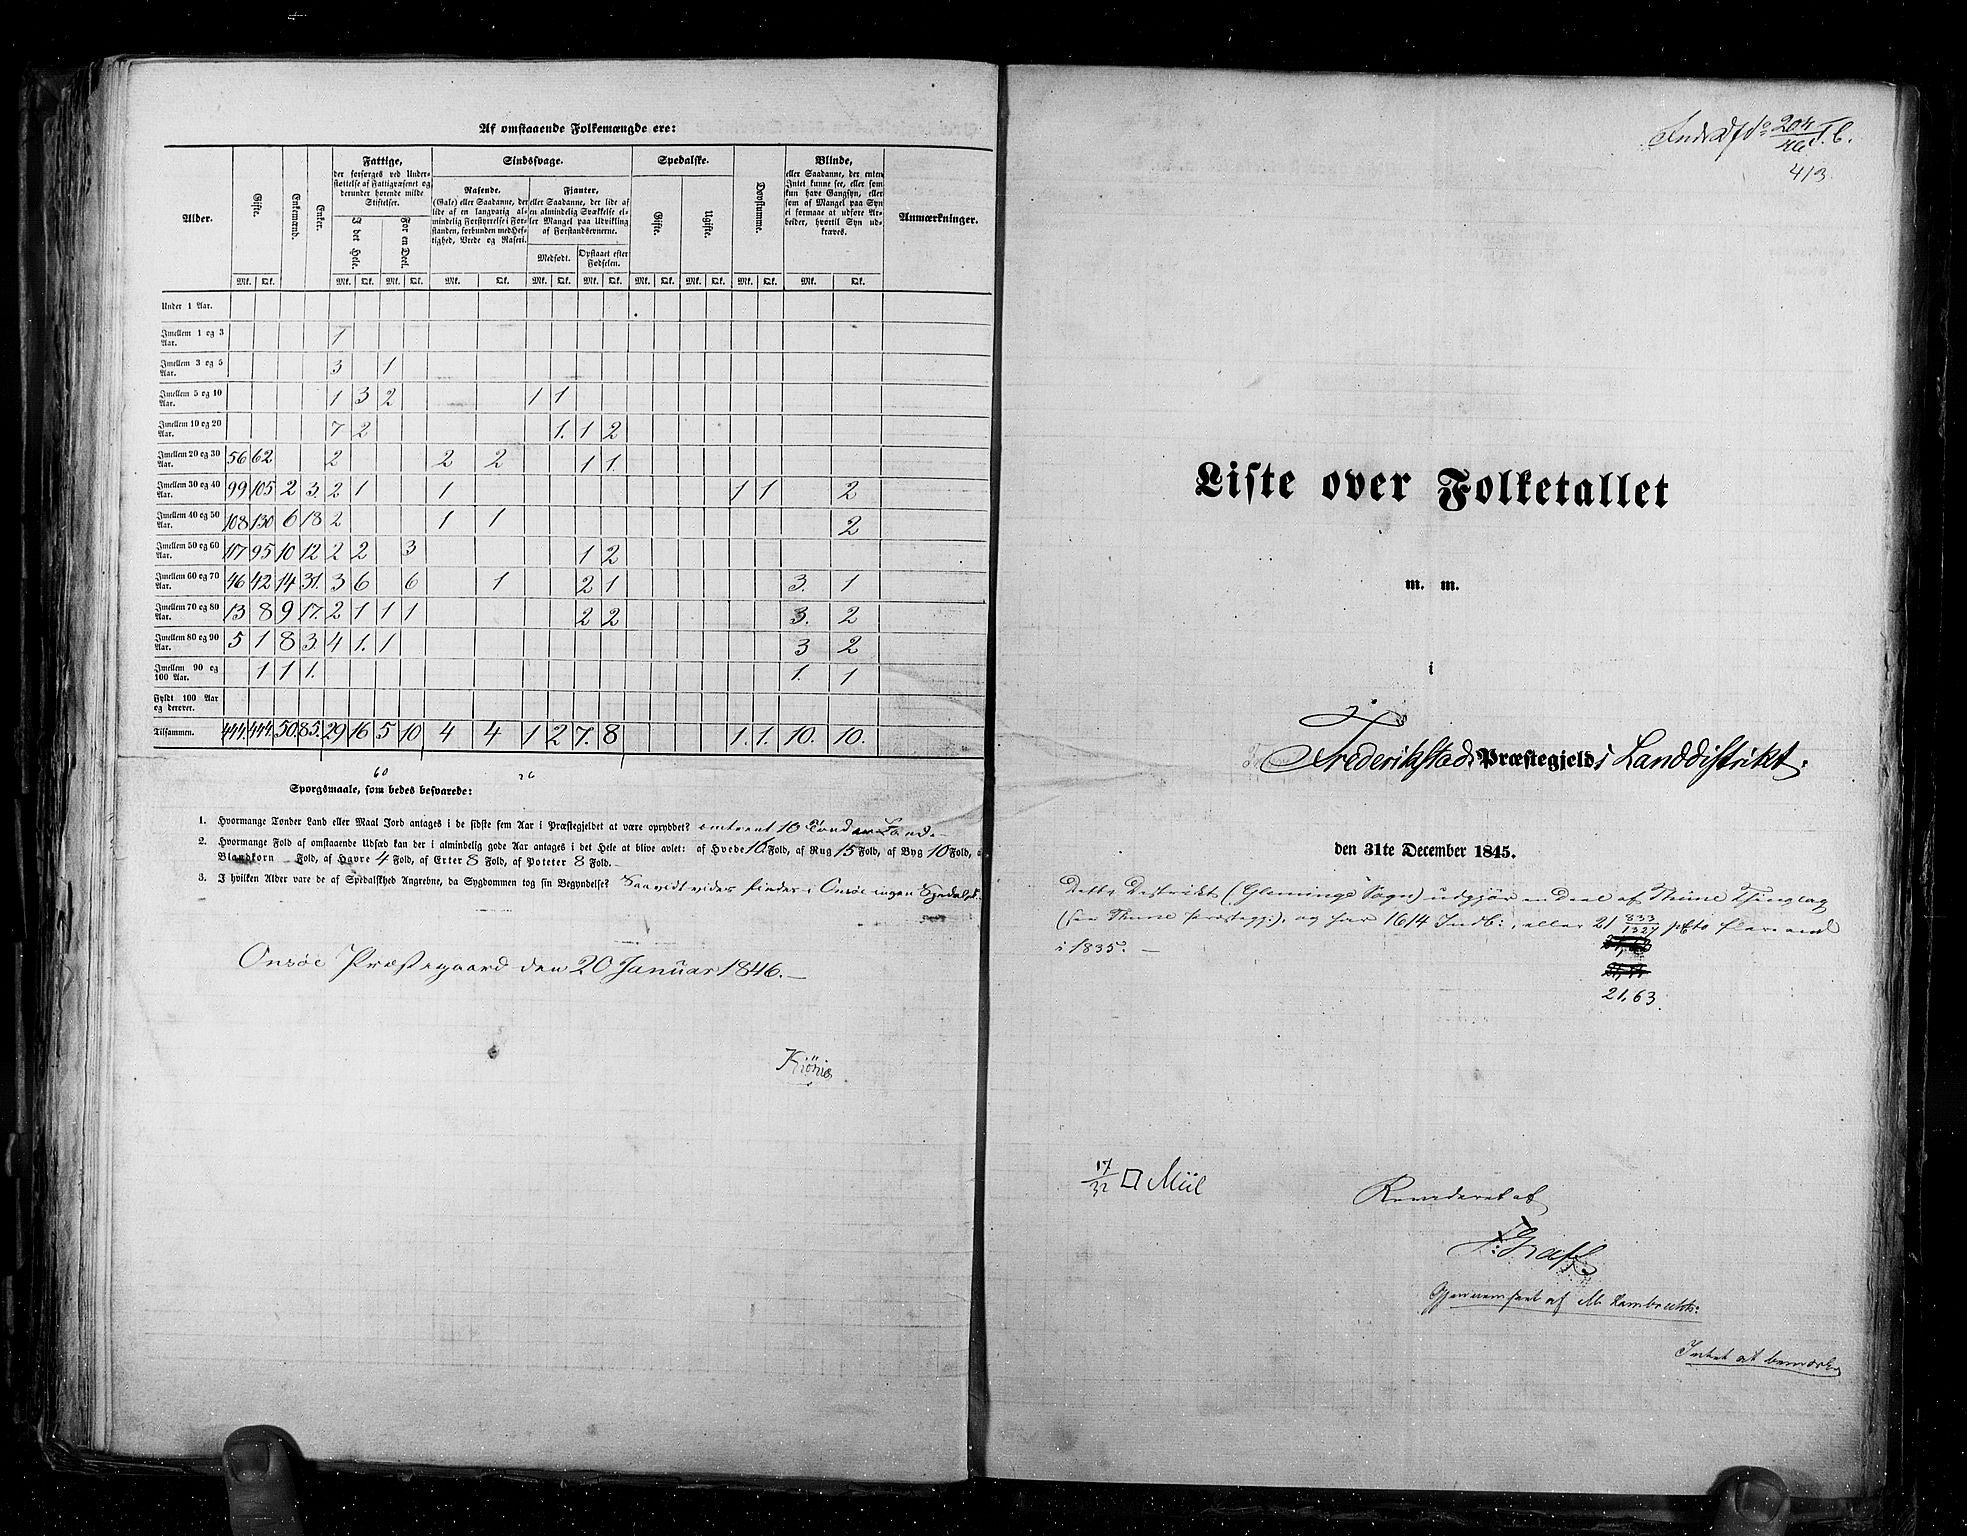 Af omstaaende Folkemængde ere:
Alder. Gifte. Enkemænd. Enker. Fattige, der forsørges ved Understøttelse af Fattigvæsenet og derunder hørende milde Stiftelser. Sindssvage. Spedalske. Døvstumme. Blinde, eller Saadanne, der enten Intet kunne see, eller som kun have Gangsyn, eller som af Mangel paa Syn ei formaae at udføre Arbeider, hvortil Syn udkræves. Anmærkninger.
I det Hele. For en Deel. Rasende. (Gale) eller Saadanne, der lide af en langvarig almindelig Forstyrrelse i Forstanden, forbunden med Heftighed, Vrede og Raseri. Fjanter, eller Saadanne, der lide af en almindelig Svækkelse eller Mangel paa Udvikling af Forstandsevnerne. Gifte. Ugifte.
Medfødt. Opstaaet efter Fødselen.
Mk. Qk. Mk. Qk. Mk. Qk. Mk. Qk. Mk. Qk. Mk. Qk. Mk. Qk. Mk. Qk. Mk. Qk. Mk. Qk.
Under 1 Aar.
Imellem 1 og 3 Aar. 1
Imellem 3 og 5 Aar. 3 1
Imellem 5 og 10 Aar. 1 3 2 1 1
Imellem 10 og 20 Aar. 7 2 1. 1 2
Imellem 20 og 30 Aar. 56 62 2 2 2 1 1.
Imellem 30 og 40 Aar. 99 105 2 3. 2 1 1 1 1 2
Imellem 40 og 50 Aar. 108 130 6 18 2 1 1 2
Imellem 50 og 60 Aar. 117 95 10 12 2 2 3 1 2
Imellem 60 og 70 Aar. 46 42 14 31. 3 6 6 1 2 1 3. 1
Imellem 70 og 80 Aar. 13 8 9 17. 2 1 1 1 2 2 3. 2
Imellem 80 og 90 Aar. 5 1 8 3. 4 1. 1 3 2
Imellem 90 og 100 Aar. 1 1 1. 1. 1
Fyldt 100 Aar og derover.
Tilsammen. 444. 444. 50. 85. 29 16 5 10 4 4 1 2 7. 8 1. 1. 10. 10.
60 26
Spørgsmaale, som bedes besvarede:
1. Hvormange Tønder Land eller Maal Jord antages i de sidste fem Aar i Præstegjeldet at være opryddet? omtrent 10 Tønder Land.
2. Hvormange Fold af omstaaende Udsæd kan der i almindelig gode Aar antages i det Hele at blive avlet: af Hvede 16 Fold, af Rug 15 Fold, af Byg 10 Fold, a
Blandkorn Fold, af Havre 4 Fold, af Erter 8 Fold, af Poteter 8 Fold.
3. I hvilken Alder vare de af Spedalskhed Angrebne, da Sygdommen tog sin Begyndelse? Saavidt vides findes i Onsøe ingen Spedalsk.
Onsøe Præstegaard den 20 Januar 1846.
204
413
Liste over Folketallet
m. m.
i
Frederikstads Præstegjelds Landdistrikt.
den 31te December 1845.
Dette Distrikt (Glemminge Sogn) udgjør en Deel af Thune Thinglag
(see Thune Præstegj:), og har 1614 Indb:, eller 21 833/1327 pCto flere end
i 1835.
21,63
17/32 □ Miil
Revideret af
Gjennemseet af M. Lambrechts.
Intet at bemærke